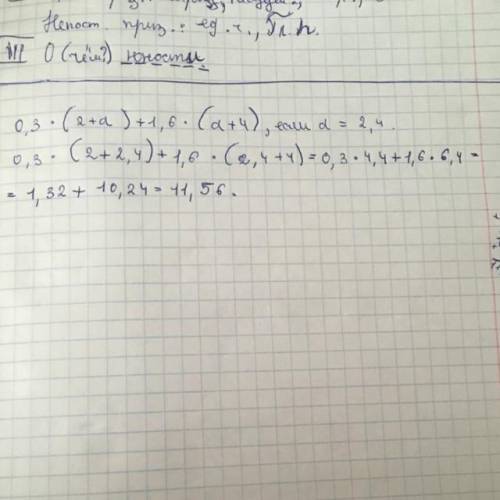 Непост. приз.: ед. ч., П. п.
III О (чём?) юности.
0,3 · (2+d) + 1,6 · (d+4), если d = 2,4.
0,3 · (2+2,4) + 1,6 · (2,4+4) = 0,3 · 4,4 + 1,6 · 6,4 =
= 1,32 + 10,24 = 11,56.